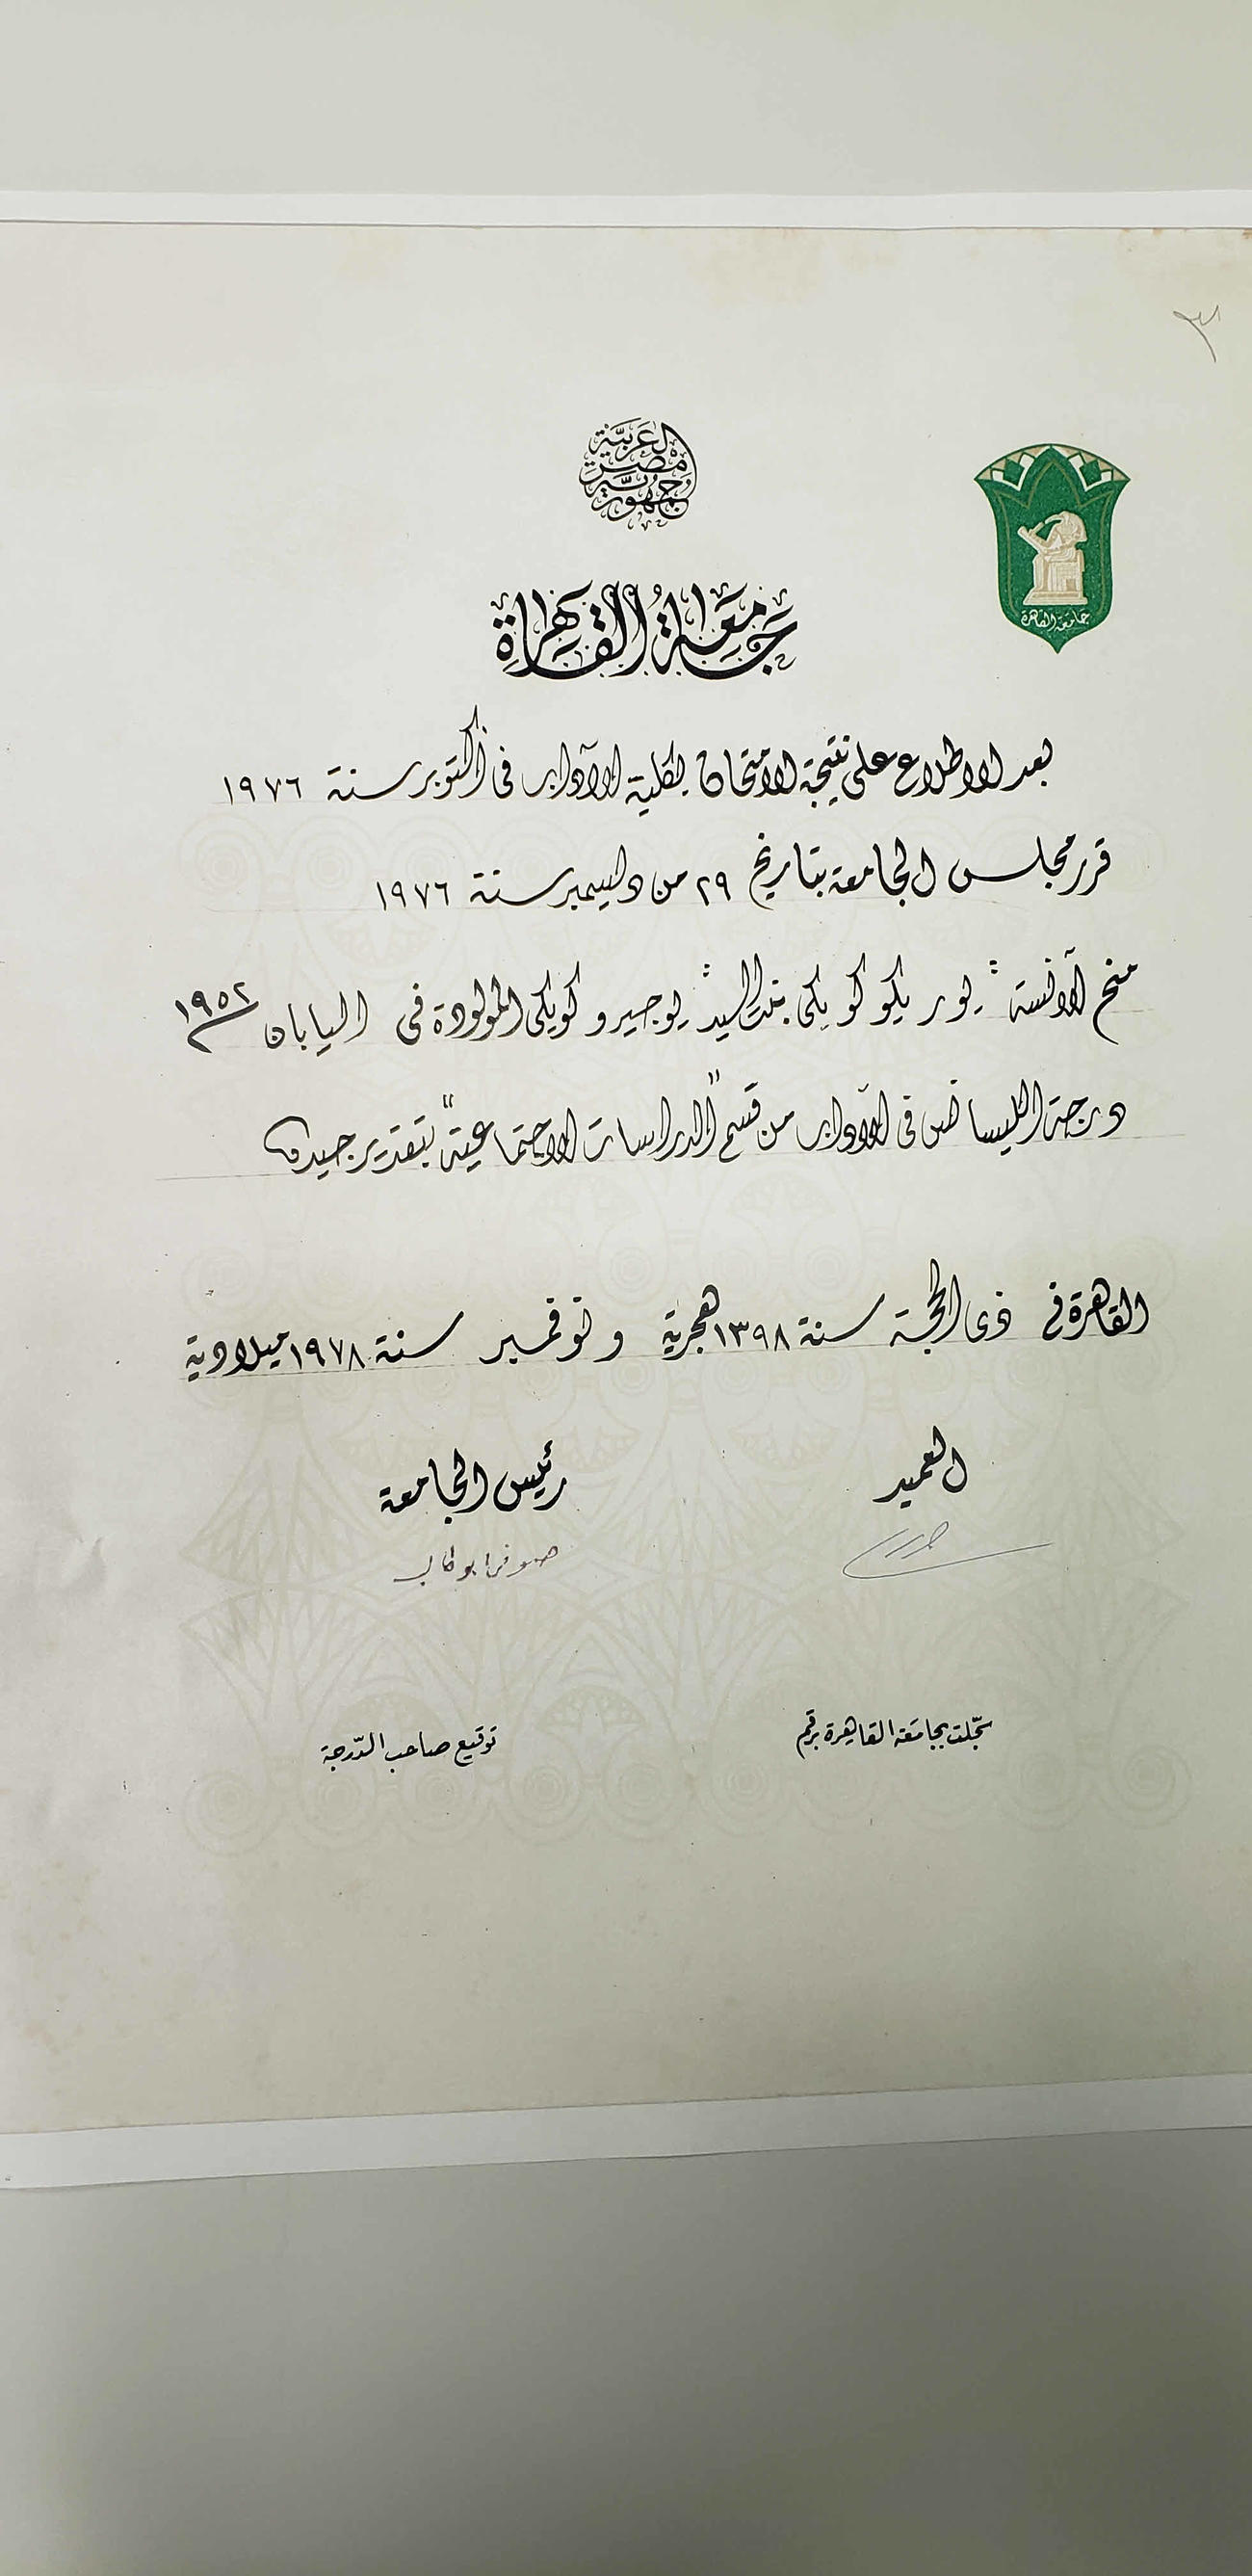 جمهورية مصر العربية
جامعة القاهرة
جامعة القاهرة
بعد الاطلاع على نتيجة الامتحان بكلية الآداب فى أكتوبر سنة ١٩٧٦
قرر مجلس الجامعة بتاريخ ٢٩ من ديسيمبر سنة ١٩٧٦
منح الآنسة " يوريكو كويكى بنت السيد " يوجيرو كويكى المولودة فى اليابان سنة ١٩٥٢
درجة الليسانس فى الآداب من قسم "الدراسات الاجتماعية" بتقدير جيد
القاهرة فى ذى الحجة سنة ١٣٩٨ هجرية و نوفمبر سنة ١٩٧٨ ميلادية
العميد
رئيس الجامعة
صوفى ابو طالب
سجّلت بجامعة القاهرة برقم
توقيع صاحب الدّرجة